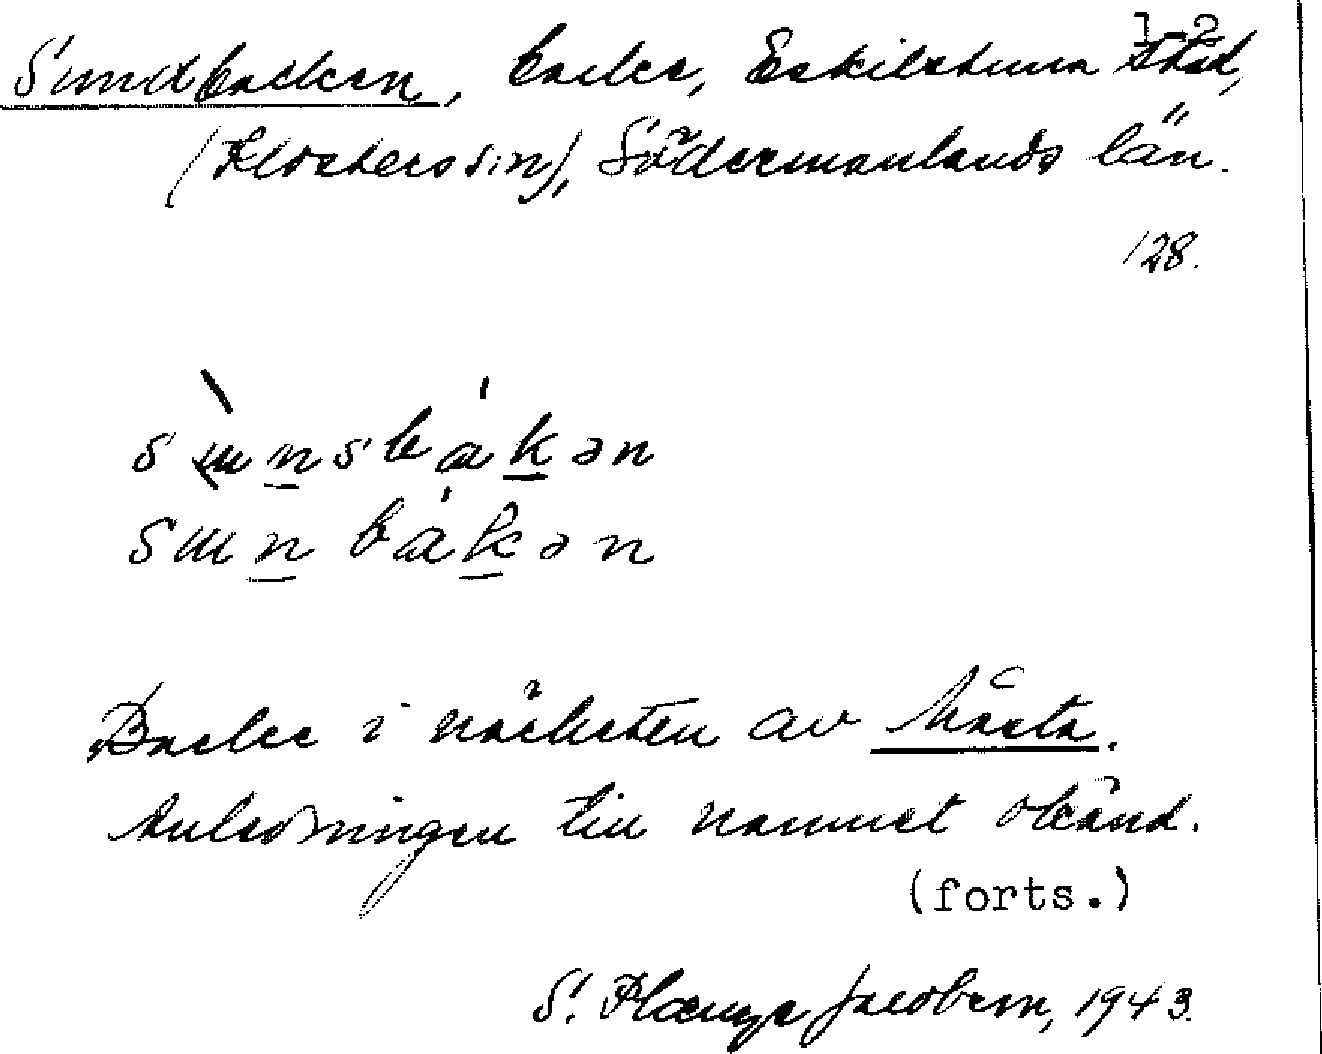 1-2
Sundbacken, backe, Eskilstuna stad,
(Klosters sn), Södermanlands län.
128.
sùnsbákən
sunbákən
Backe i närheten av Måsta.
Anledningen till namnet okänd.
(forts.)
S. Jacobson, 1943.